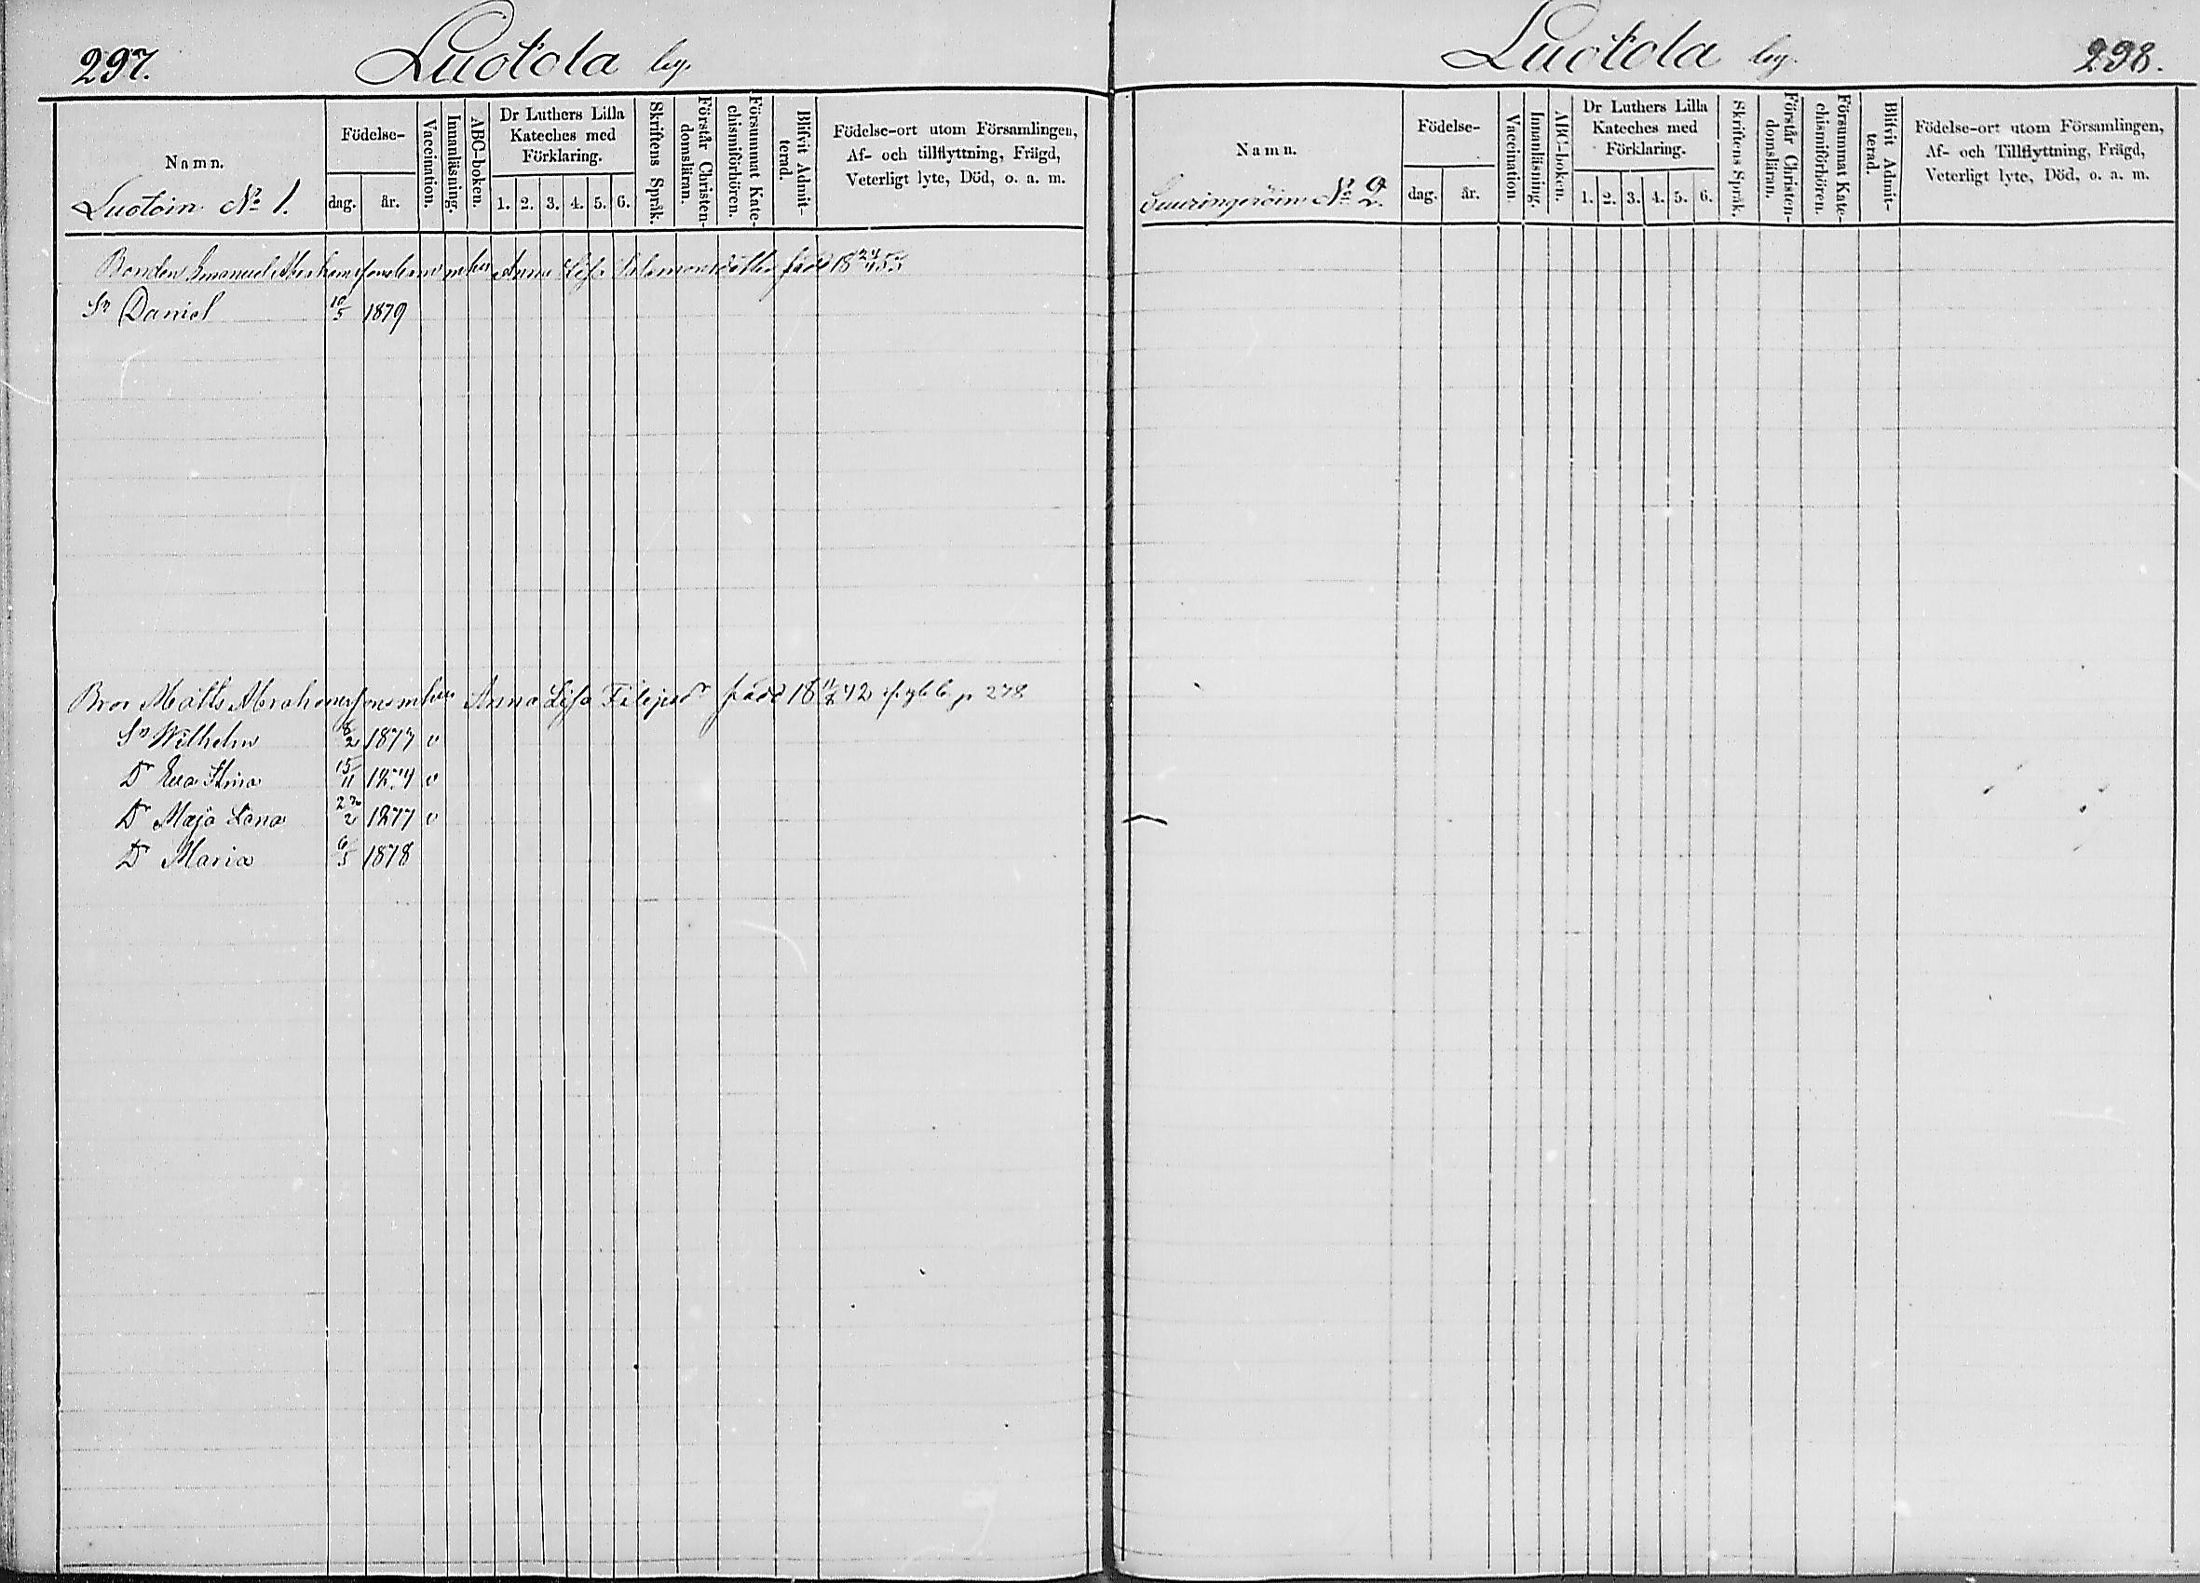 297. Luotola by.
Namn.
Födelse-
dag. år.
Vaccination.
Innanläsning.
ABC-boken.
Dr Luthers Lilla
Kateches med
Förklaring.
1. 2. 3. 4. 5. 6.
Skriftens Språk.
Förstår Christen-
domsläran.
Försummat Kate-
chismiförhören.
Blifvit Admit-
terad.
Födelse-ort utom Församlingen,
Af- och tillflyttning, Frägd,
Veterligt lyte, Död, o. a. m.
Luotoin No 1.
Bonden Emanuel Abrahamsons barn m hu Anna Lisa Salomonsdotter född 18 24/4 55
Sn Daniel 10/5 1879
Bror Matts Abrahamssons m hu Anna Lisa Filipsdr född 18 42 p 278
Sn Wilhelm 8/2 1877 v
Dr Eva Stina 15/11 v
Dr Maja Lena 2 1877 v
Dr Maria 6/5 1878
Luotola by. 298.
Namn.
Födelse-
dag. år.
Vaccination.
Innanläsning.
ABC-boken.
Dr Luthers Lilla
Kateches med
Förklaring.
1. 2. 3. 4. 5. 6.
Skriftens Språk.
Förstår Christen-
domsläran.
Försummat Kate-
chismiförhören.
Blifvit Admit-
terad.
Födelse-ort utom Församlingen,
Af- och Tillflyttning, Frägd,
Veterligt lyte, Död, o. a. m.
No 2.